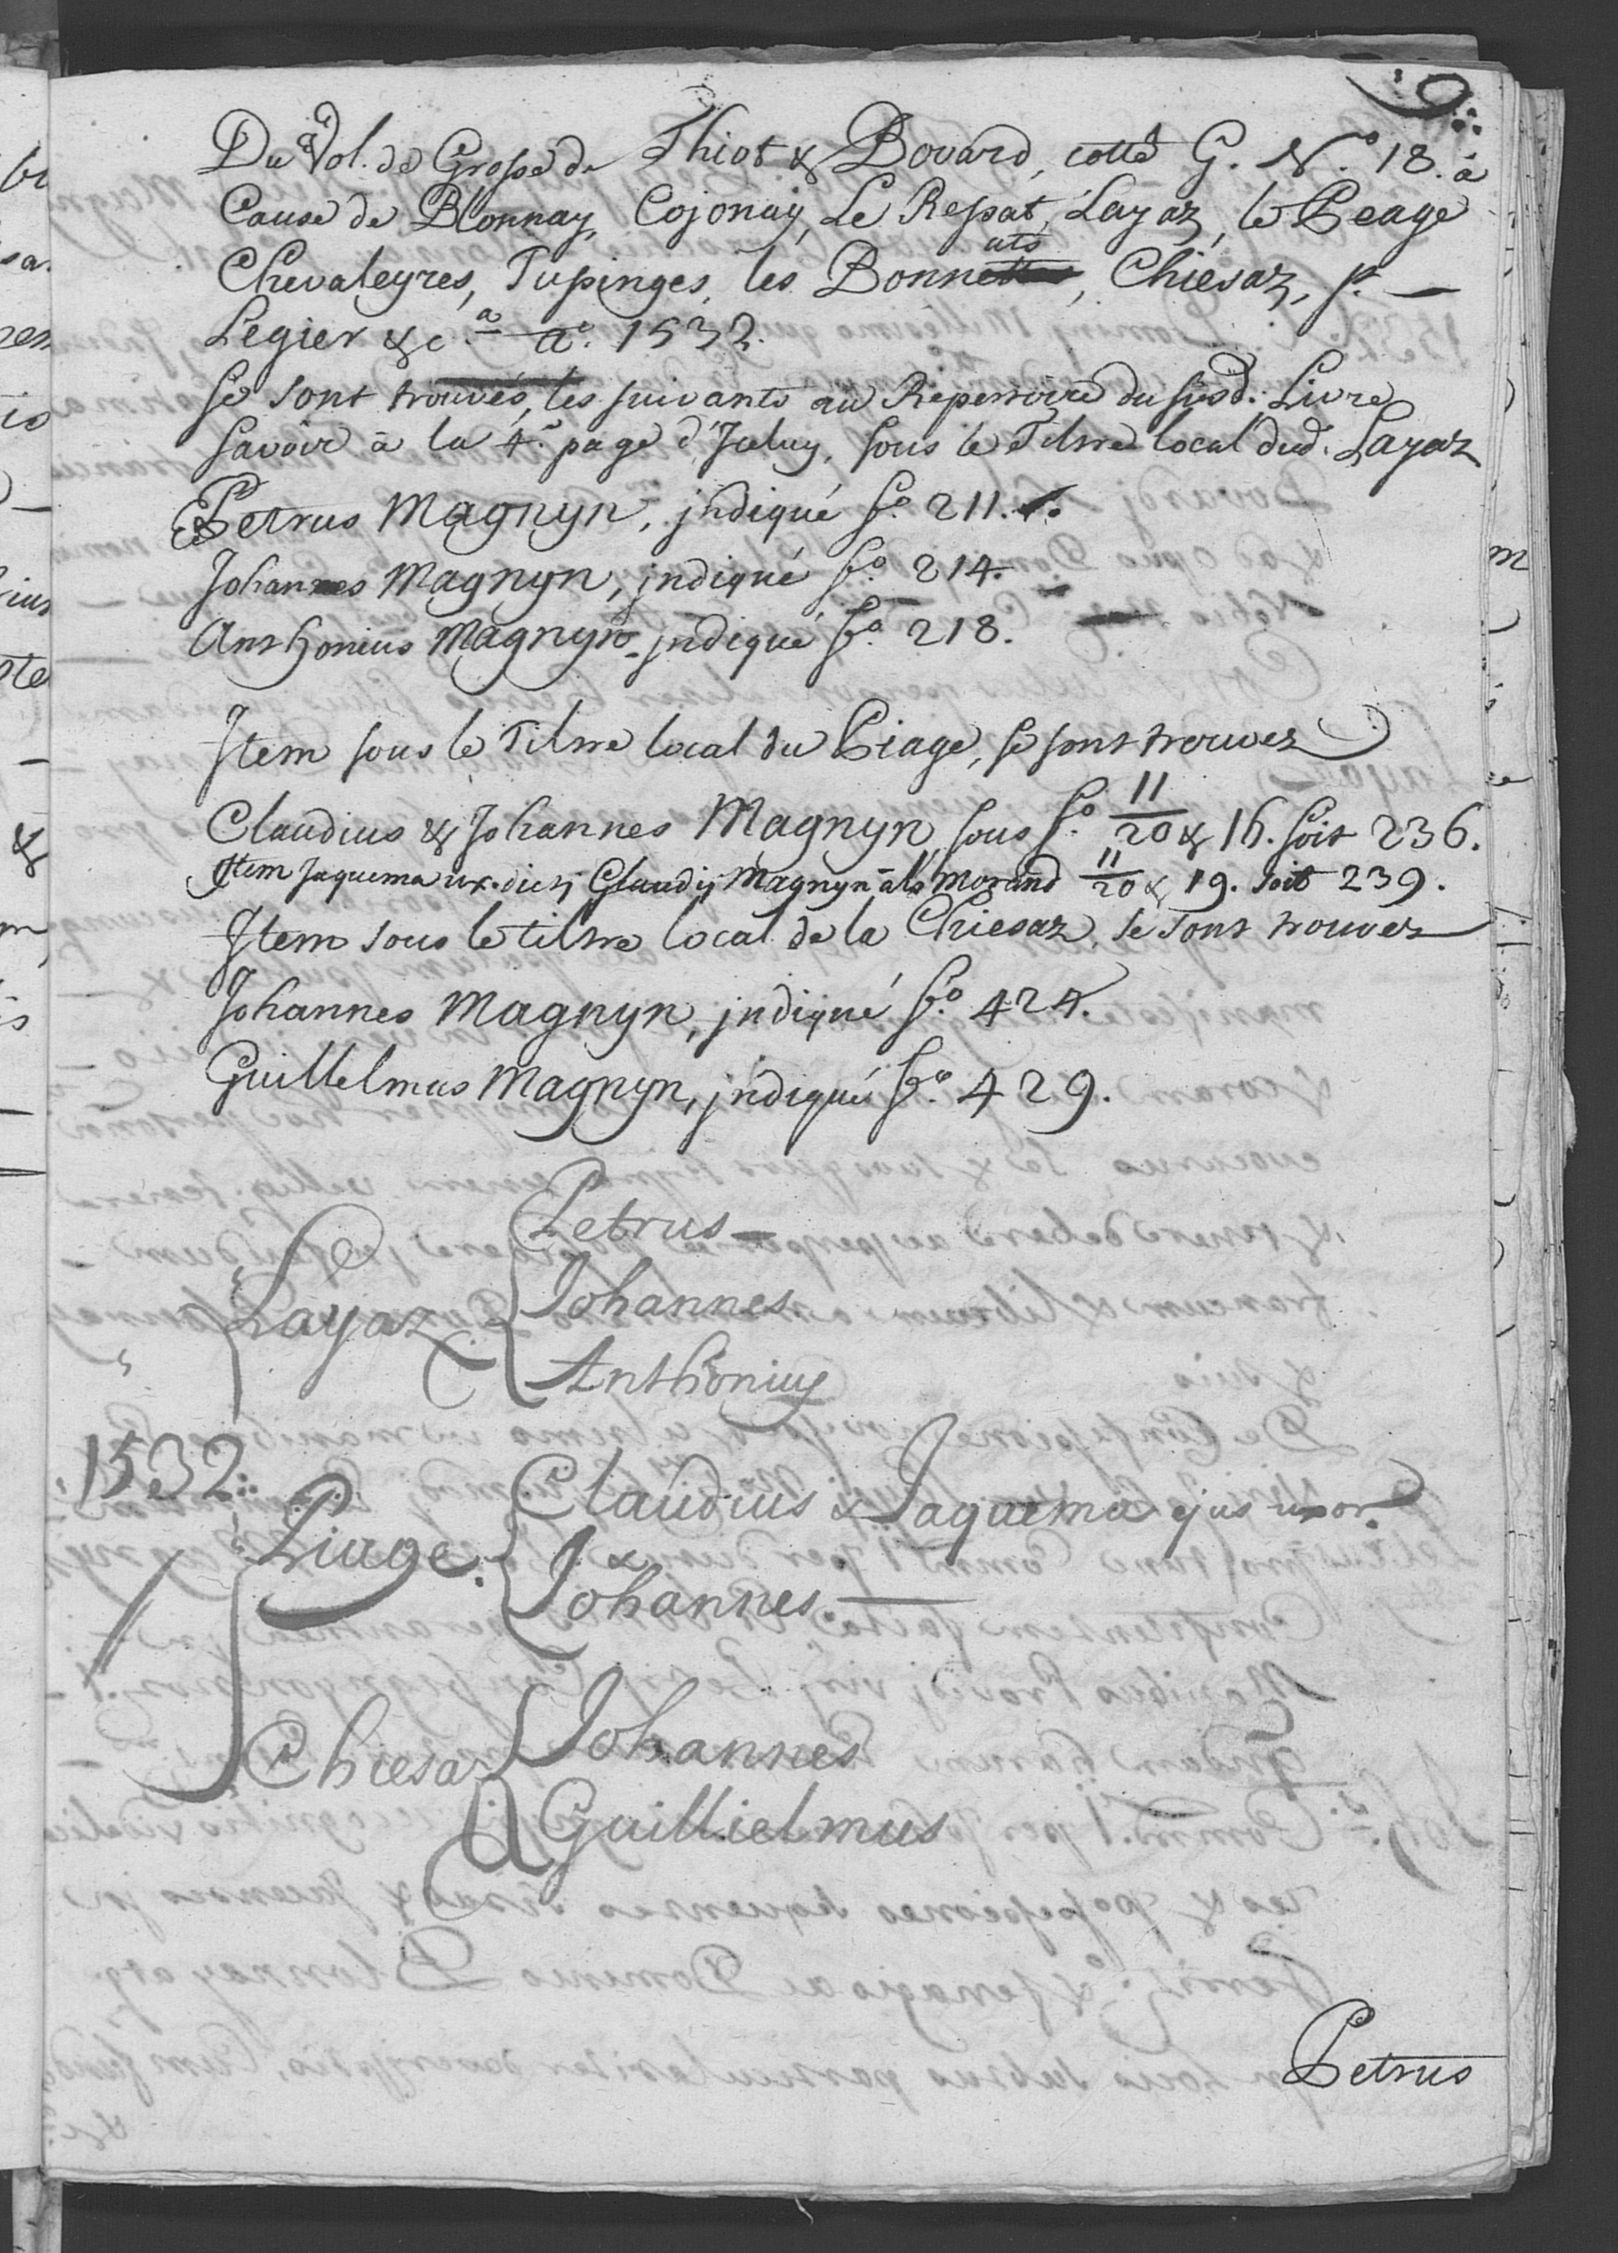 9
Du Vol. de Grosse de Thiot & Bovard, cotté G. N.º 18. à
Cause de Blonnay, Cojonay, Le Respat, Layaz, le Peage
Chevaleyres, Tusinges, les Bonnetts, Chiesaz, St. —
Legier &c.ª aº. 1532.
Se sont trouvés, les suivants au Repertoire du susd. Livre
savoir à la 4.e page d'Iceluy, sous le Tiltre local dud. Layaz
Petrus Magnyn, jndiqué fº. 211.
Johannes Magnyn, jndiqué fº. 214.
Anthonius Magnyn, jndiqué fº. 218.
Item sous le Tiltre local du Piage, se sont trouvez
Claudius & Johannes Magnyn, sous fº. 11/20 & 16. soit 236.
Item Jaquema ux. dicti Claudij Magnyn als Morand 11/20 & 19. soit 239.
Item sous le tiltre local de la Chiesaz, se sont trouvez
Johannes Magnyn, jndiqué fº. 424.
Guillelmus Magnyn, jndiqué fº. 429.
Petrus —
Layaz Johannes
Anthonius
1532.
Claudius & Jaquema ejus uxor.
Piage. &
Johannes —
Chiesaz Johannes
Guillielmus
Petrus